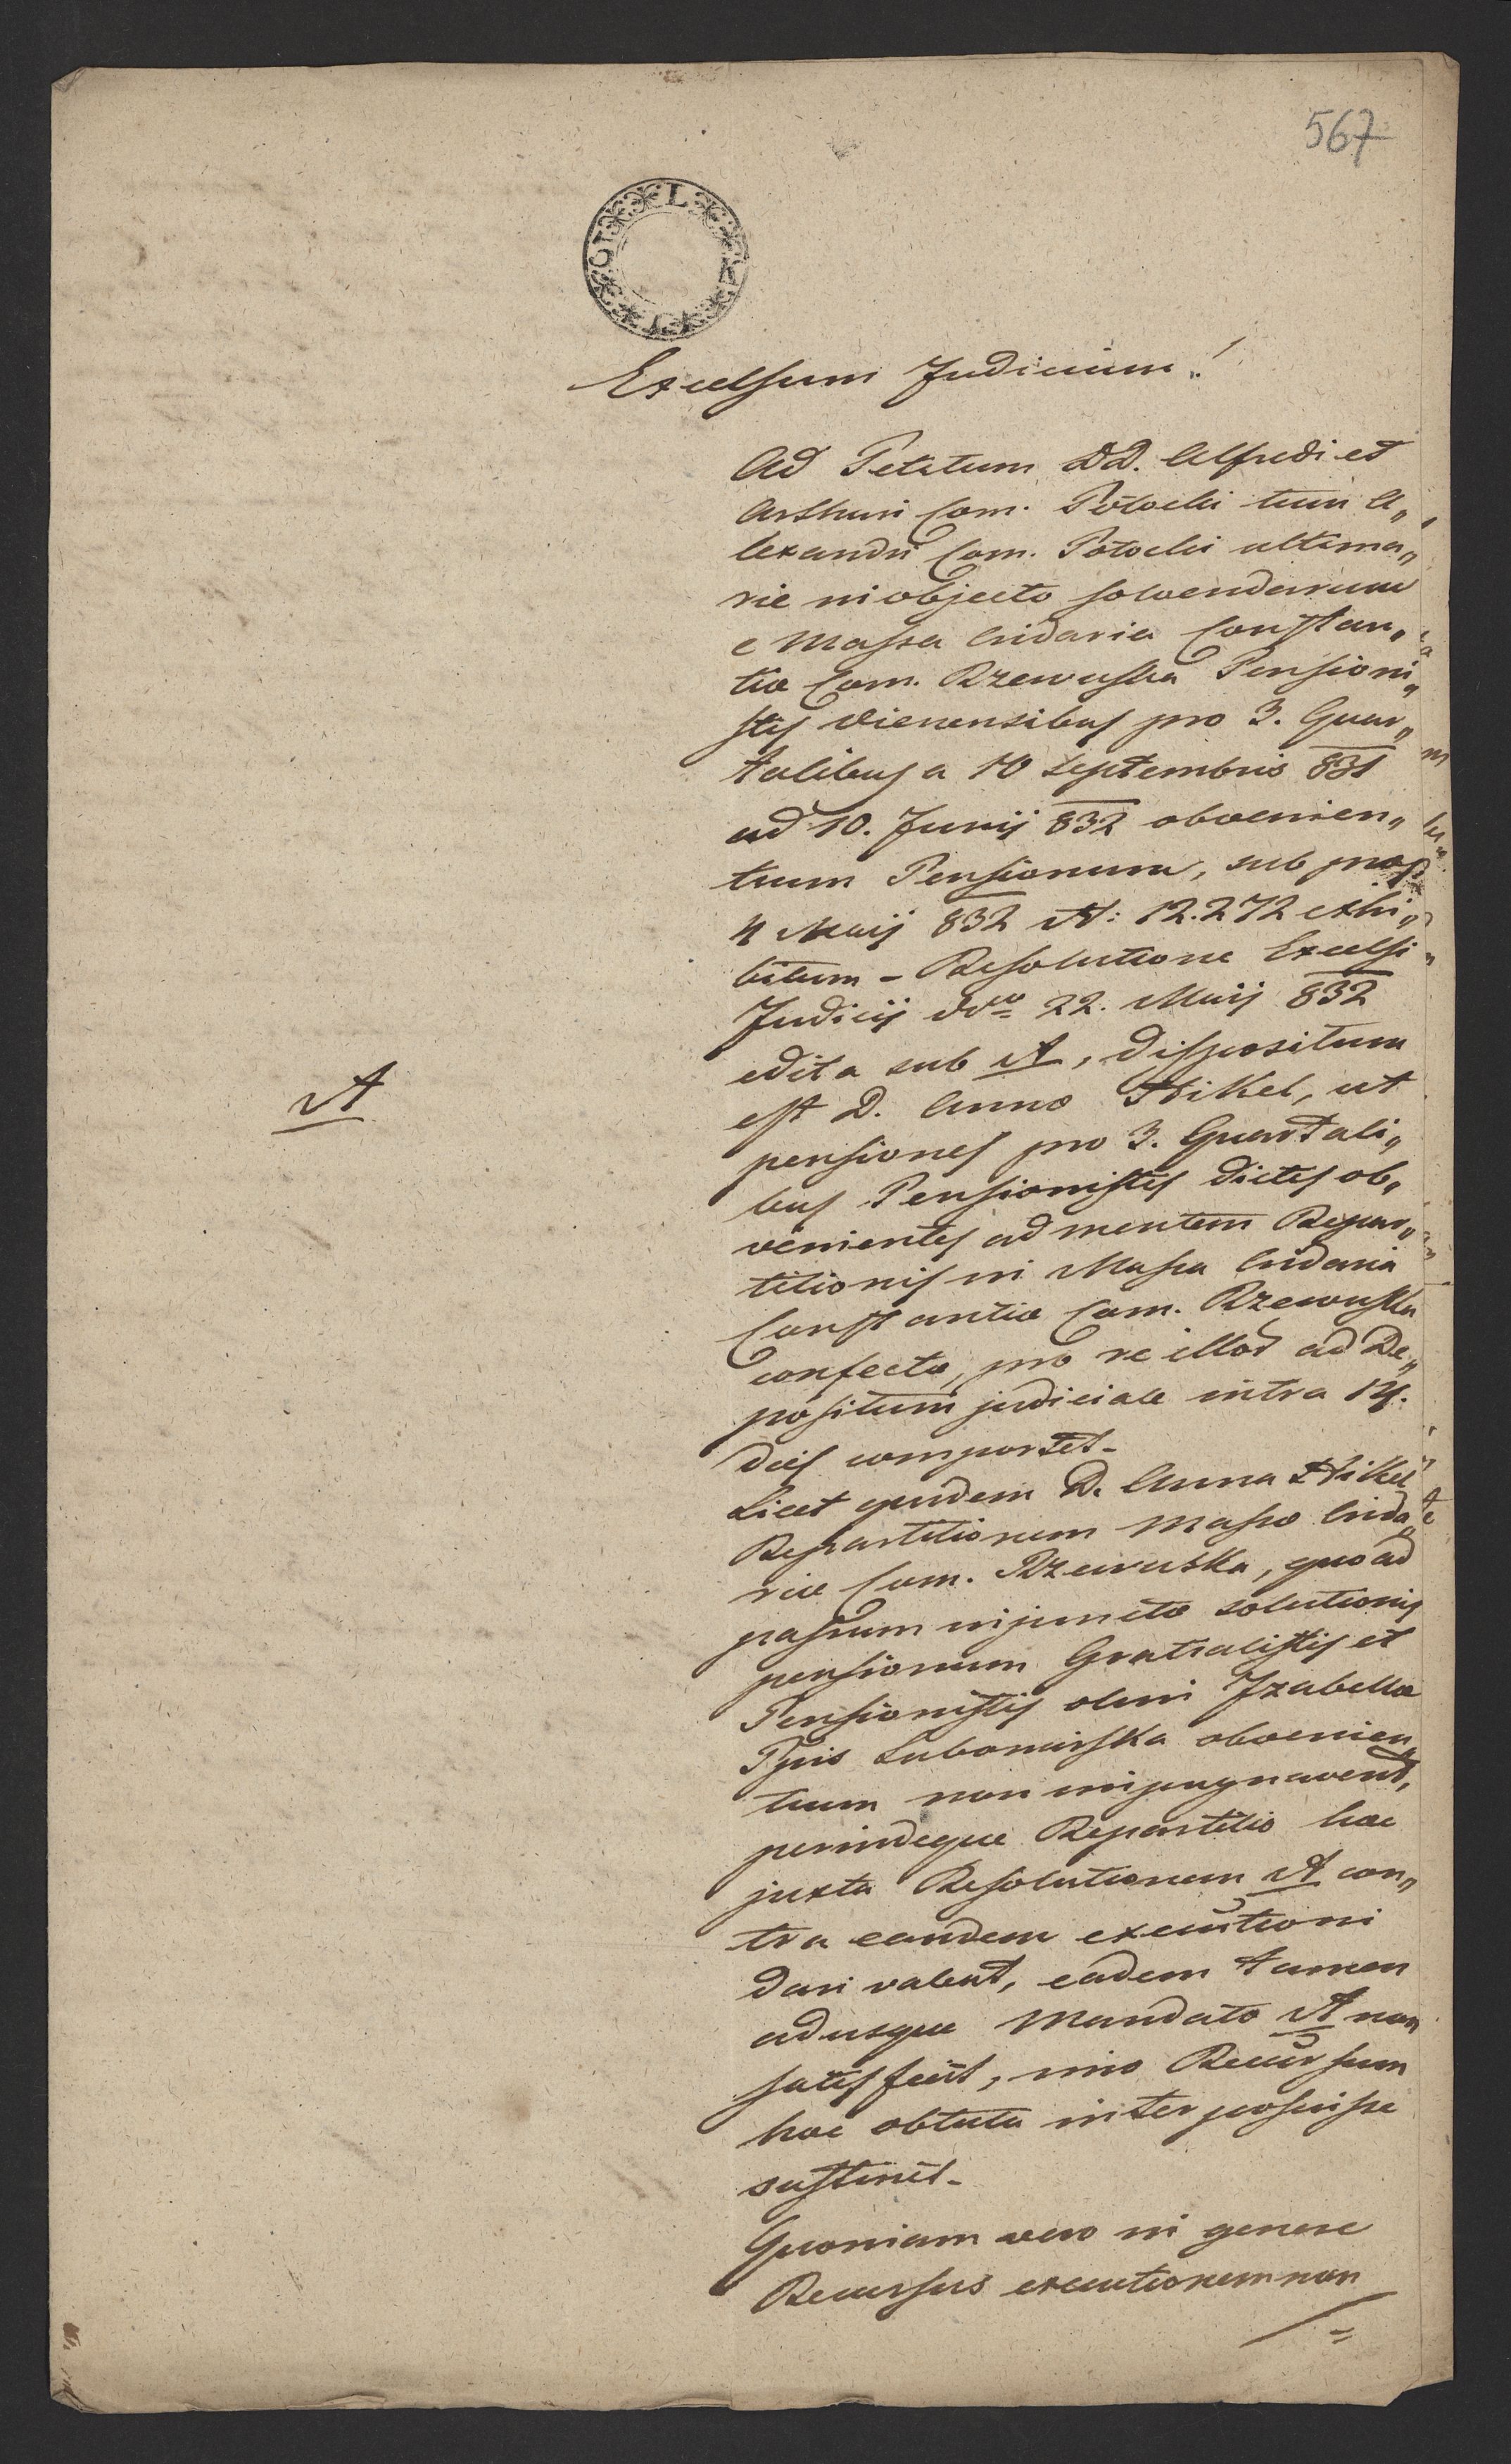 567
Excelsum Judicium!
Ad Petitum DD. Alfredi et
Arthuri Com. Potocki tum A„
lexandri Com. Potocki ultima„
rie in objecto solvendarum
e Massa Cridaria Constan„
tiæ Com. Rzewuska Pensioni„
stis Vienensibus pro 3. Quar„
talibus a 10 Septembris 831
ad 10. Junij 832 obvenien„
tium Pensionum, sub præs
4 Maij 832 N: 12.272 exhi„
bitum – Resolutione Excelsi
Judicij ddto 22. Maij 832
edita sub A, dispositum
A
est D. Annæ Hikel, ut
pensiones pro 3. Quartali„
bus Pensionistis dictis ob„
venientes ad mentem Repar„
titionis in Massa Cridaria
Constantiæ Com. Rzewuska
confectæ, pro re illor ad De„
positum judiciale intra 14.
dies comportet–
Licet quidem D. Anna Hikel
Repartitionem Massæ Crida„
riæ Com. Rzewuska, quoad
passum injunctæ solutionis
pensionum Gratialistis et
Pensionistis olim Izabellæ
Ppis Lubomirska obvenien„
tium non impugnavent,
perindeque Repartitio hæc
juxta Resolutionem A con„
tra eandem executioni
dari valeat, eadem tamen
adusque Mandato A non
satisfecit, imo Recursum
hoc obtutu interposuisse
sustinet–
Quoniam vero in genere
Recursus executionem non